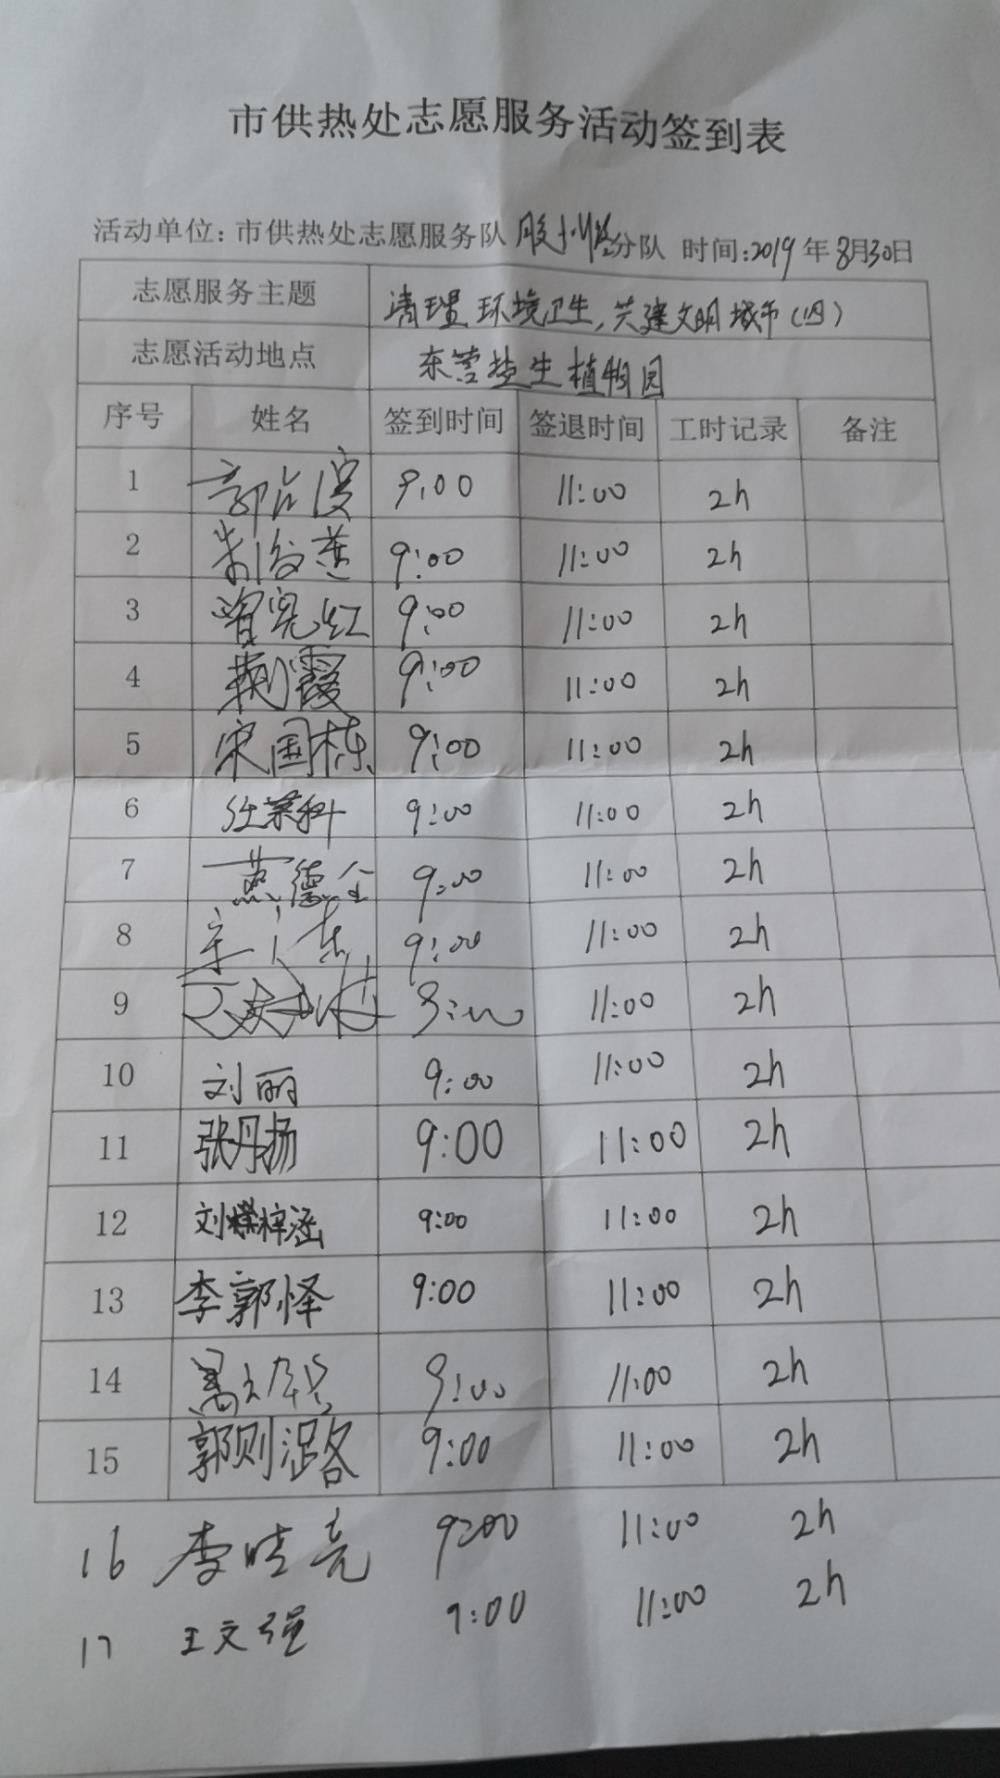 市供热处志愿服务活动签到表
活动单位：市供热处志愿服务队 胶州路分队 时间:2019年8月30日
志愿服务主题 清理环境卫生,共建文明城市(四)
志愿活动地点 东营盐生植物园
序号 姓名 签到时间 签退时间 工时记录 备注
1 9:00 11:00 2h
2 9:00 11:00 2h
3 9:00 11:00 2h
4 霞 9:00 11:00 2h
5 宋国栋 9:00 11:00 2h
6 任荣科 9:00 11:00 2h
7 燕德全 9:00 11:00 2h
8 9:00 11:00 2h
9 9:00 11:00 2h
10 刘丽 9:00 11:00 2h
11 张丹扬 9:00 11:00 2h
12 刘梓涵 9:00 11:00 2h
13 李郭怿 9:00 11:00 2h
14 9:00 11:00 2h
15 郭则 9:00 11:00 2h
16 李晓亮 9:00 11:00 2h
17 王文强 9:00 11:00 2h